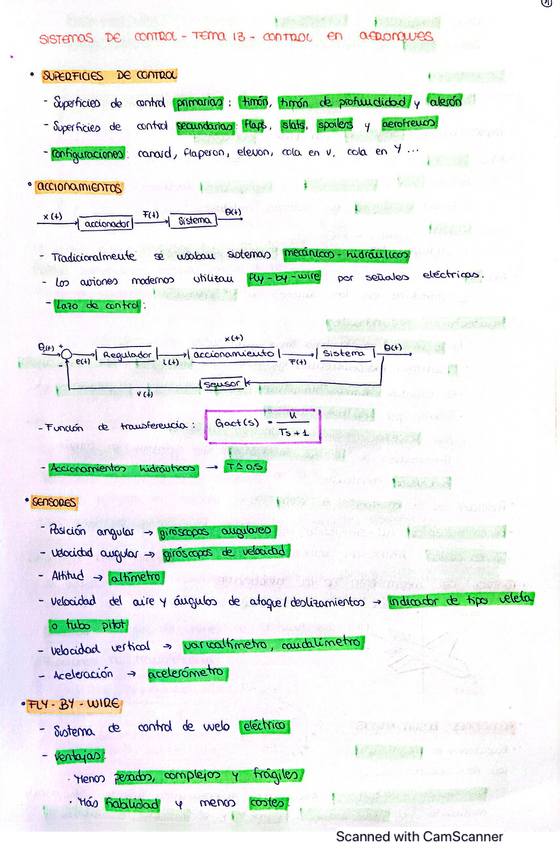 SISTEMAS DE CONTROL - TEMA 13 - CONTROL EN AERONAVES
• SUPERFICIES DE CONTROL
- Superficies de control primarias: timón, timón de profundidad y alerón
- Superficies de control secundarias: flaps, slats, spoilers y aerofrenos
- Configuraciones: canard, flaperon, elevon, cola en v, cola en Y ...
• ACCIONAMIENTOS
x(t) accionador F(t) Sistema θ(t)
- Tradicionalmente se usaban sistemas mecánicos-hidráulicos
- Los aviones modernos utilizan fly-by-wire por señales eléctricas.
- Lazo de control:
x(t)
+ - e(t) Regulador i(t) accionamiento F(t) Sistema θ(t)
sensor
v(t)
- Función de transferencia: Gact(s) = K / Ts + 1
- Accionamientos hidráulicos →
• SENSORES
- Posición angular → giróscopos angulares
- Velocidad angular → giróscopos de velocidad
- Altitud → altímetro
- Velocidad del aire y ángulos de ataque/deslizamientos → indicador de tipo veleta
o tubo pitot
- Velocidad vertical →
- Aceleración → acelerómetro
• FLY-BY-WIRE
- Sistema de control de vuelo eléctrico
- Ventajas:
· Menos pesados, complejos y frágiles
· Más fiabilidad y menos costes.
Scanned with CamScanner